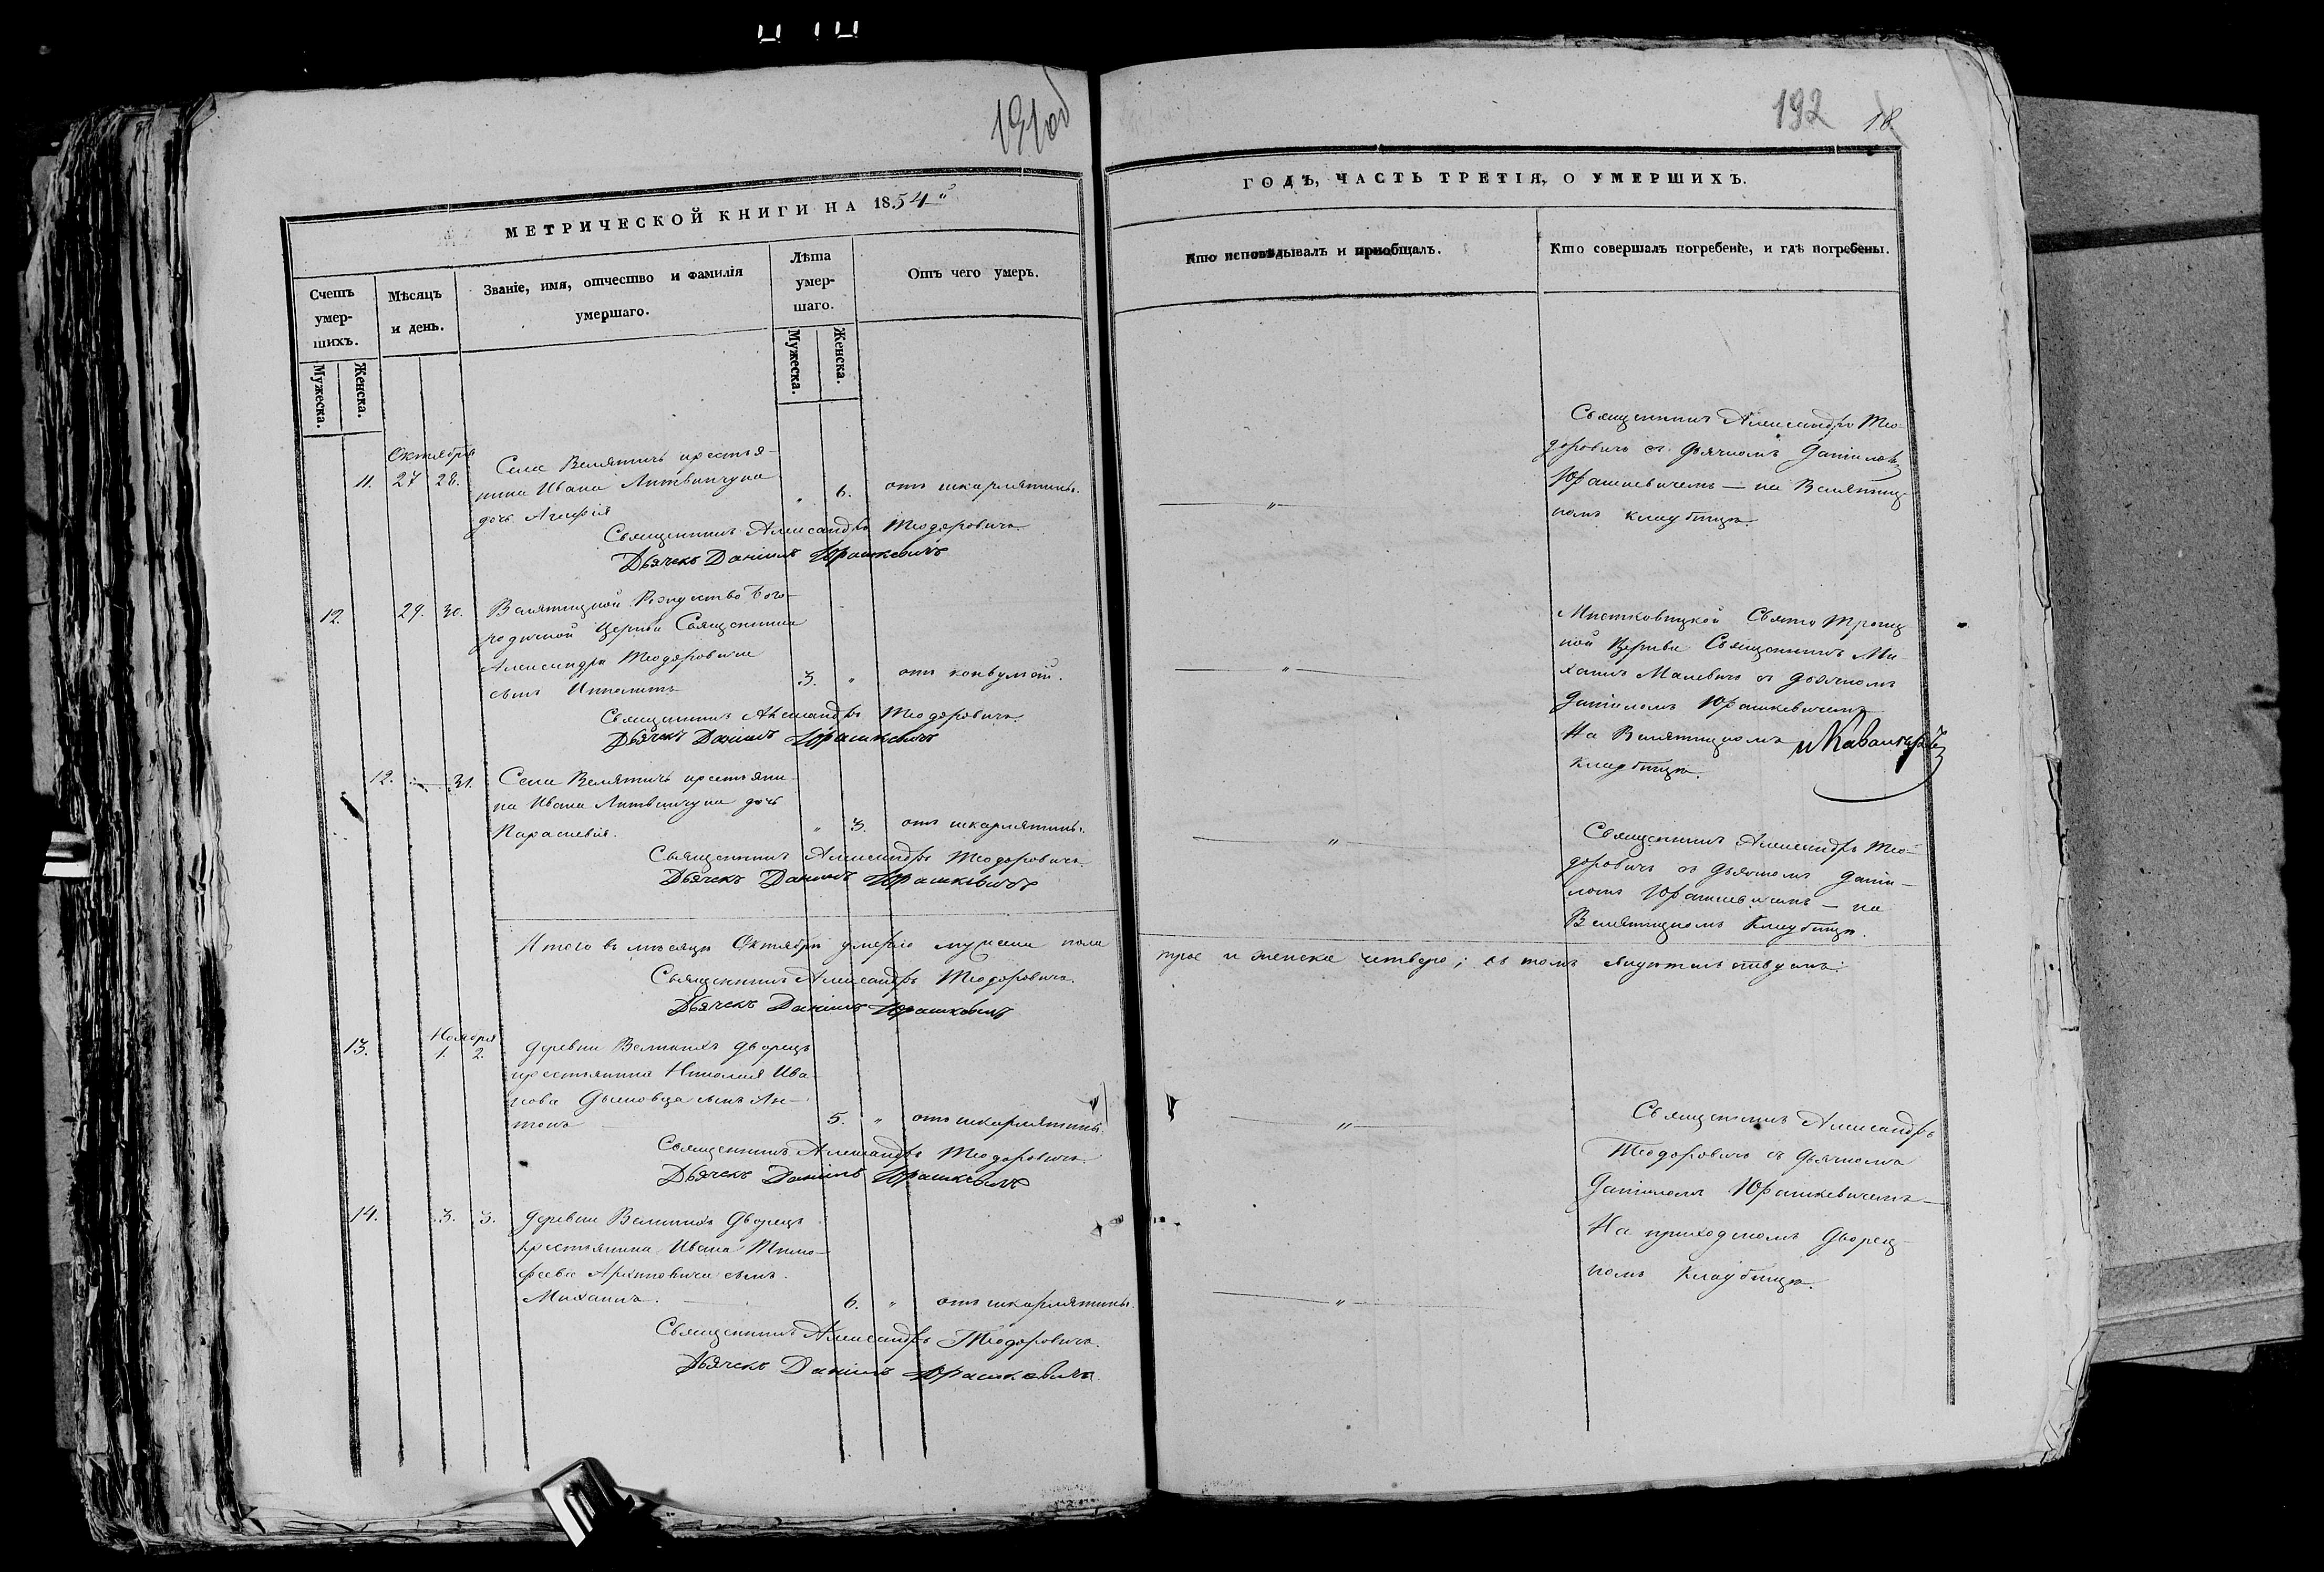 191об
МЕТРИЧЕСКОЙ КНИГИ НА 1854й
Счетъ умер-шихъ.
Мѣсяцъ и день.
Званіе, имя, отчество и фамилія умершаго.
Лѣта умер-шаго.
Отъ чего умеръ.
Мужеска.
Женска.
Мужеска.
Женска.
Октября
11. 27 28.
Села Велятичъ крестья-
нина Ивана Литвинчука
дочь Агафія
" 6. отъ шкарлятины.
Священникъ Александръ Теодоровичъ
Дьячекъ Даніилъ Юрашкевичъ
12. 29. 30.
Велятицкой Рождество Бого-
родичной Церкви Священника
Александра Теодоровича
сынъ Ипполитъ
3. " отъ конвульсій.
Священникъ Александръ Теодоровичъ
Дьячекъ Даніилъ Юрашкевичъ
12. — 31.
Села Велятичъ крестьяни-
на Ивана Литвинчука дочь
Параскевія.
" 3. отъ шкарлятины.
Священникъ Александръ Теодоровичъ.
Дьячекъ Даніилъ Юрашкевичъ
Итого въ мѣсяцѣ Октябрѣ умерло мужеска пола
Священникъ Александръ Теодоровичъ.
Дьячекъ Даніилъ Юрашкевичъ
Ноября
13. 1. 2.
Деревни Великихъ Дворецъ
крестьянина Николая Ива-
нова сынъ Ан-
тонъ
5. " отъ шкарлятины.
Священникъ Александръ Теодоровичъ
Дьячекъ Даніилъ Юрашкевичъ
14. 3. 5.
Деревни Великихъ Дворецъ
крестьянина Ивана Тимо-
феева Архиповича сынъ
Михаилъ.
6. " отъ шкарлятины.
Священникъ Александръ Теодоровичъ.
Дьячекъ Даніилъ Юрашкевичъ.
192 18
ГОДЪ, ЧАСТЬ ТРЕТІЯ, О УМЕРШИХЪ.
Кто исповѣдывалъ и приобщалъ.
Кто совершалъ погребеніе, и гдѣ погребены.
"
Священникъ Александръ Тео-
доровичъ съ Дьячкомъ Даніиломъ
Юрашкевичемъ — на Велятиц-
комъ кладбищѣ.
"
Мстковицкой Свято Троиц-
кой Церкви Священникъ Ми-
хаилъ Малевичъ съ дьячкомъ
Даніиломъ Юрашкевичемъ
На Велятицкомъ
Кладбищѣ.
"
Священникъ Александръ Тео-
доровичъ съ дьячкомъ Дании-
ломъ Юрашкевичемъ — на
Велятицкомъ Кладбищѣ.
трое и женска четверо; въ томъ
"
Священникъ Александръ
Теодоровичъ съ Дьячкомъ
Даніиломъ Юрашкевичемъ —
На приходскомъ Дворец-
комъ Кладбищѣ.
"